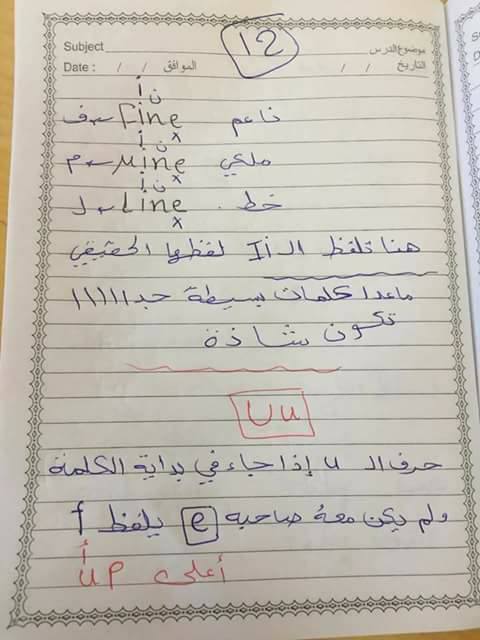 ١2
Subject موضوع الدرس
Date : / / الموافق / / التاريخ
أ ن
ف ← Fine ناعم
x
أ ن
م ← Mine ملكي
x
أ ن
ل ← Line خط
x
هنا تلفظ الـ Ii لفظها الحقيقي
ماعدا كلمات بسيطة جدااااا
تكون شاذة
Uu
حرف الـ u إذا جاء في بداية الكلمة
ولم يكن معهُ صاحبه e يلفظ أ
أ
up أعلى